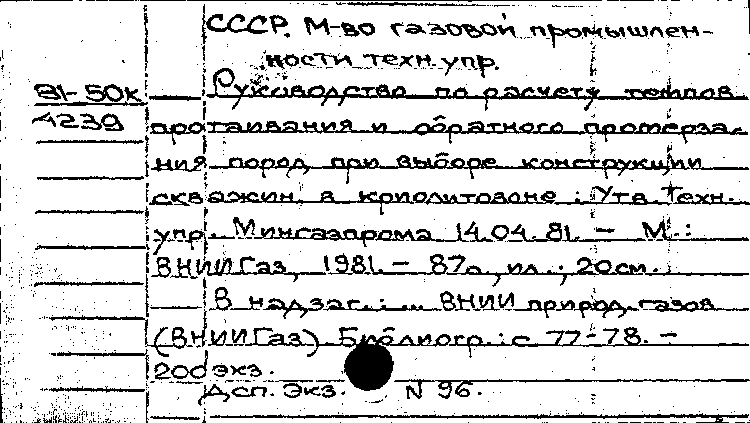 СССР. М-во газовой промышлен-
ности техн. упр.
81-50к
4239
Руководство по расчету темпов
протаивания и обратного промерза-
ния пород при выборе конструкции
скважин в криолитозоне : Утв. Техн.
упр. Мингазпрома 14.04.81. – М.:
ВНИИГаз, 1981. – 87с., ил.; 20см.
В надзаг.: ... ВНИИ природ. газов
(ВНИИГаз). Библиогр.: с. 77-78. –
200 экз.
Дсп. Экз. N 96.